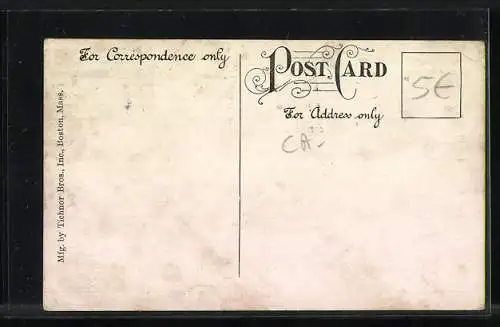 For Correspondence only
POST CARD
For Address only
5€
CA-
Mfg. by Tichnor Bros., Inc., Boston, Mass.